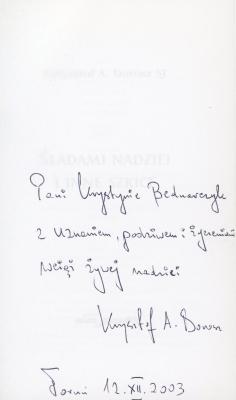 ŚLADAMI NADZIEI
I INNE SZKICE
Pani Krystynie Bednarczyk
z uznaniem, podziwem i życzeniami
wciąż żywej nadziei
Krzysztof A. Dorosz
Toruń 12.XII.2003